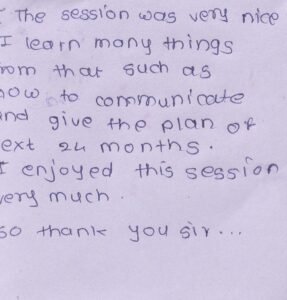 The session was very nice
I learn many things
rom that such as
how to communicate
and give the plan of
ext 24 months.
I enjoyed this session
very much.
so thank you sir...